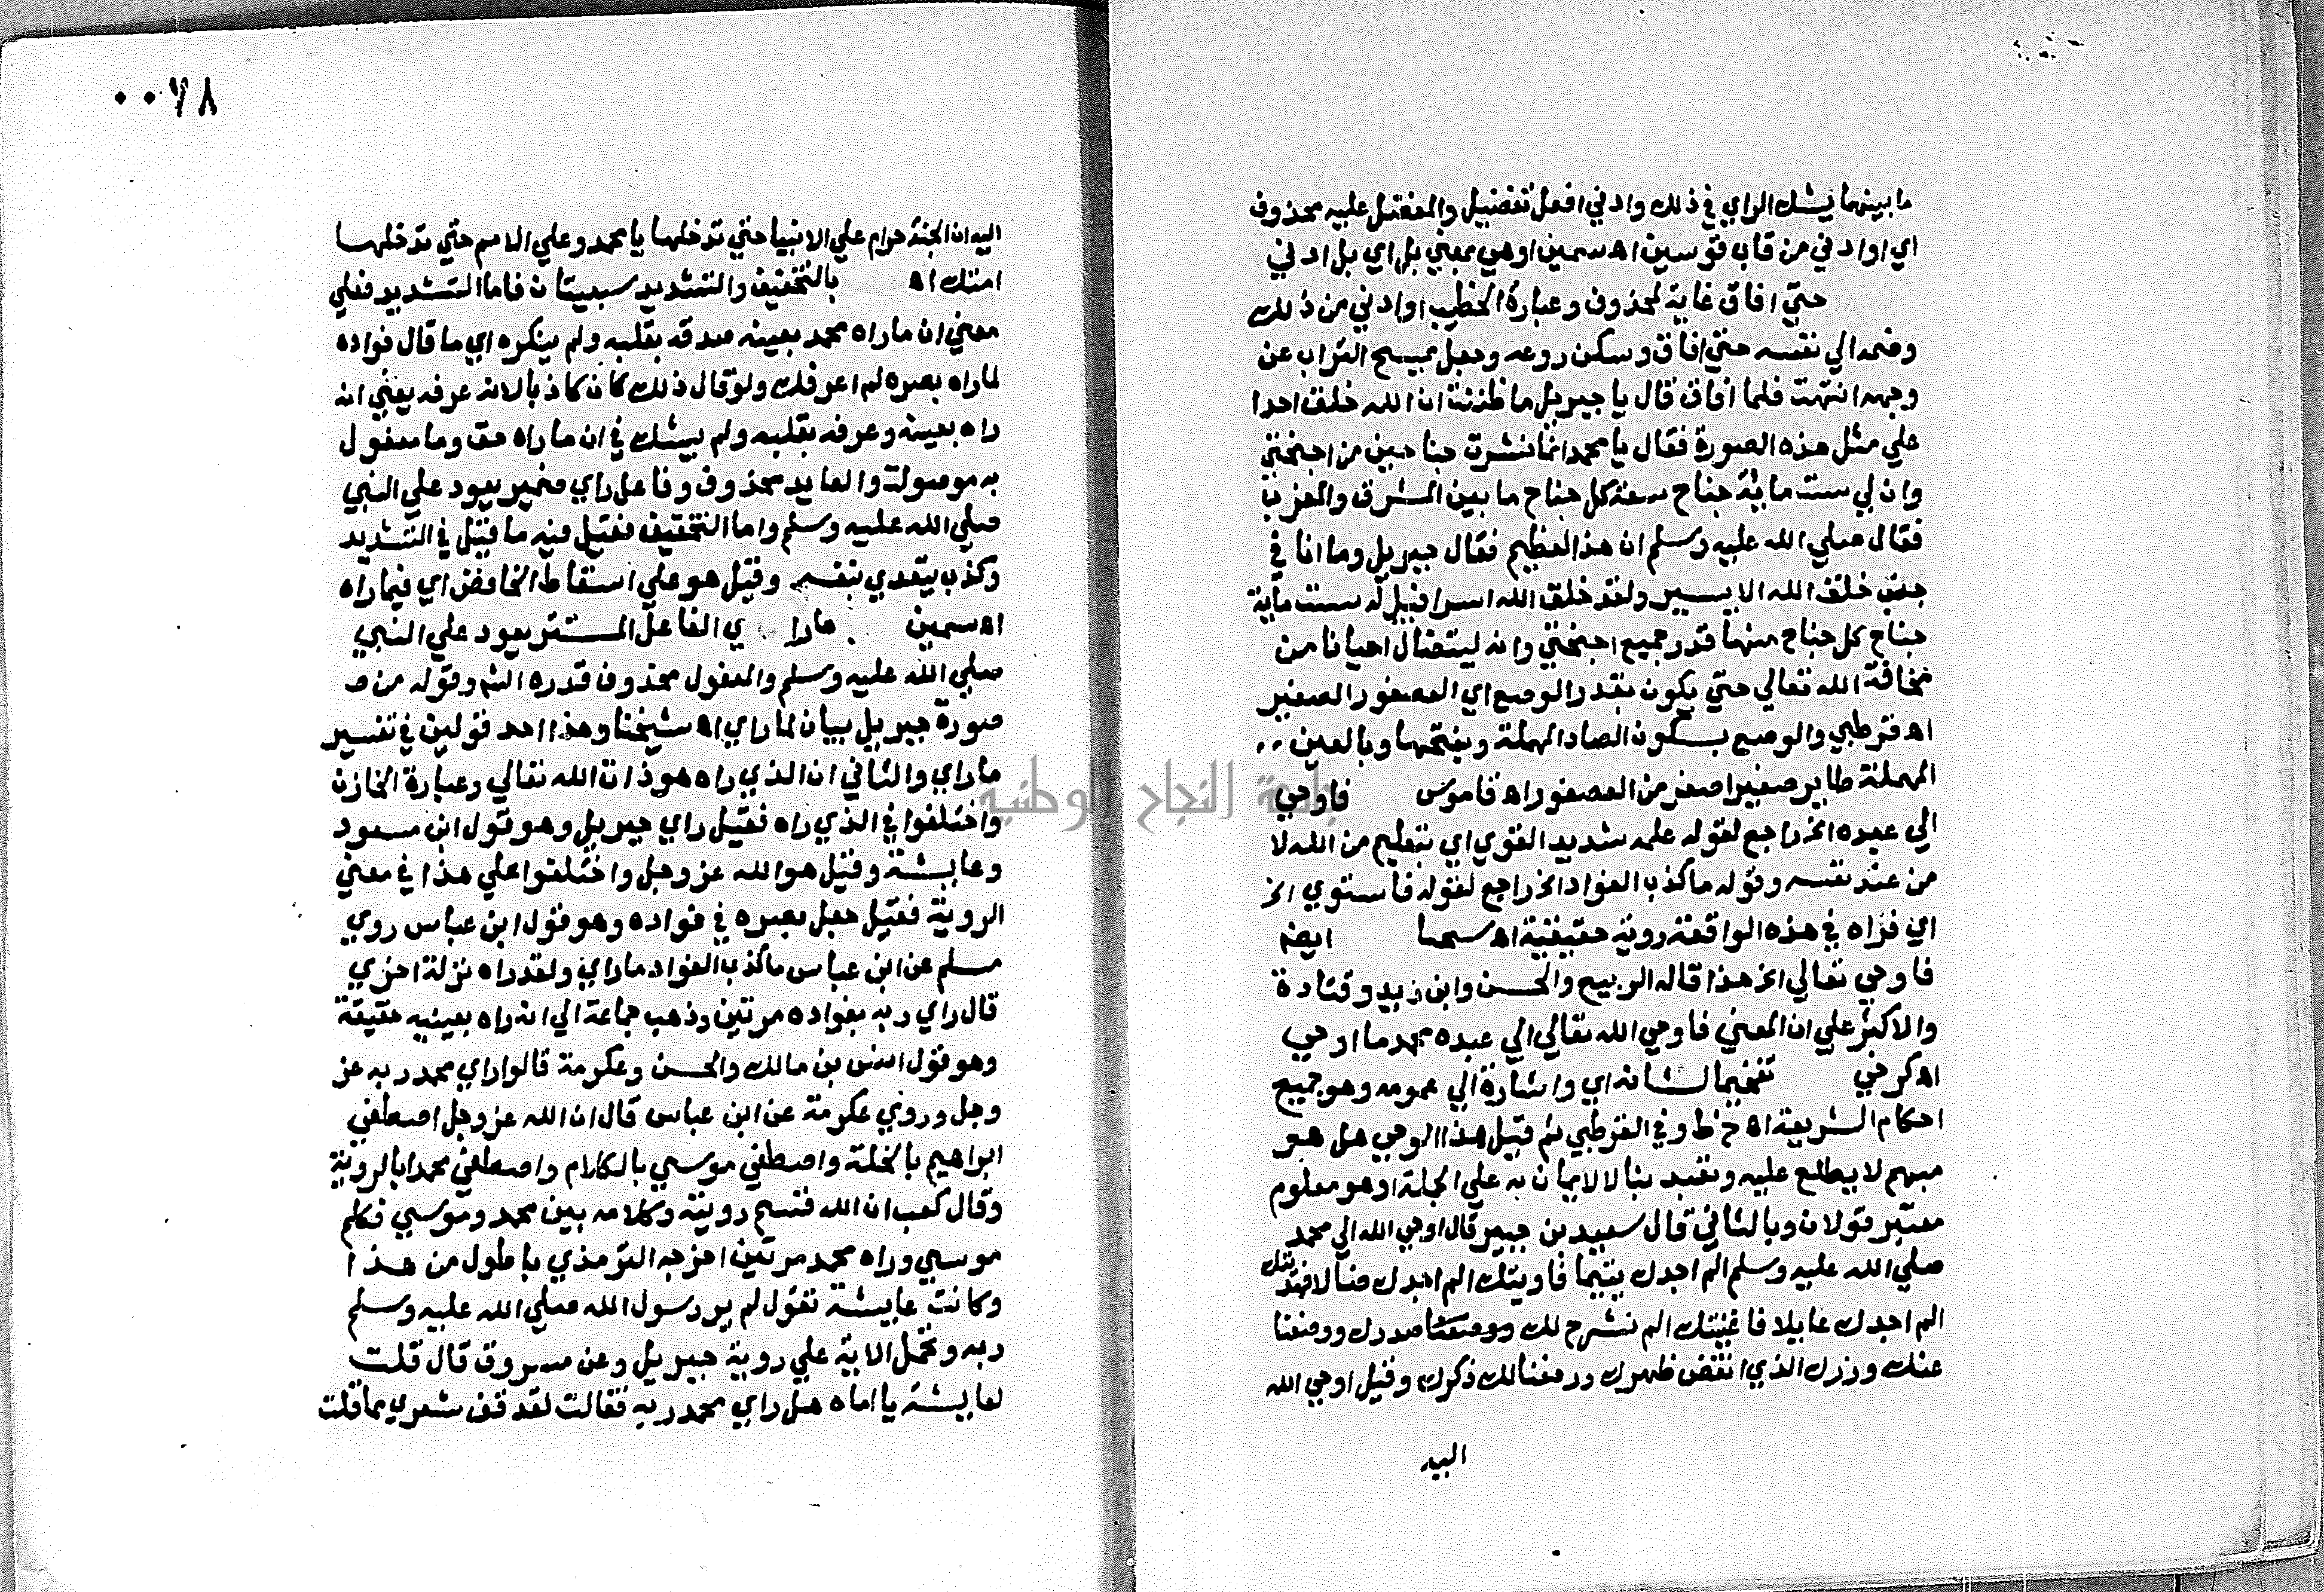 ما بينهما يشك الراي في ذلك وادني افعل تفضيل والمفضل عليه محذوف
اي او ادني من قاب قوسين اه سمين او هي بمعني بل اي بل ادني
حتي افاق غاية لمحذوف وعبارة الخطيب او ادني من ذلك
وضمه الي نفسه حتي افاق وسكن روعه وجعل يمسح التراب عن
وجهه انتهت فلما افاق قال يا جبريل ما ظننت ان الله خلق احدا
علي مثل هذه الصورة فقال يا محمد انما نشرت جناحين من اجنحتي
وان لي ست ماية جناح سعة كل جناح ما بين المشرق والمغرب
فقال صلي الله عليه وسلم ان هذا لعظيم فقال جبريل وما انا في
جنب خلق الله الا يسير ولقد خلق الله اسرافيل له ست ماية
جناح كل جناح منها قدر جميع اجنحتي وانه ليتضال احيانا من
مخافة الله تعالي حتي يكون بقدر الوصع اي العصفور الصغير
اه قرطبي والوصع بسكون الصاد المهملة وبفتحها وبالعين
المهملة طاير صغير اصغر من العصفور اه قاموس فاوحي
الي عبده الخ راجع لقوله علمه شديد القوي اي بتعليم من الله لا
من عند نفسه وقوله ما كذب الفواد الخ راجع لقوله فاستوي الخ
اي فراه في هذه الواقعة روية حقيقية اه سمين ايضا
فاوحي تعالي الخ هذا قاله الربيع والحسن وابن زيد وقتادة
والاكثر علي ان المعني فاوحي الله تعالي الي عبده محمد ما اوحي
اه كرخي تفخيما لشانه اي واشارة الي عمومه وهو جميع
احكام الشريعة اه خط وفي القرطبي ثم قيل هذا الوحي هل هو
مبهم لا يطلع عليه وتعبد بنا لا لايمان به علي الجملة او هو معلوم
معتبر قولان وبالثاني قال سعيد بن جبير قال اوحي الله الي محمد
صلي الله عليه وسلم الم اجدك يتيما فاويتك الم اجدك ضالا فهديتك
الم اجدك عايلا فاغنيتك الم نشرح لك صدرك ووضعنا
عنك وزرك الذي انقض ظهرك ورفعنا لك ذكرك وقيل اوحي الله
اليه
٠٠٧٨
اليه ان الجنة حرام علي الانبيا حتي تدخلها يا محمد وعلي الامم حتي تدخلها
امتك اه بالتخفيف والتشديد سبعيتان فاما التشديد فعلي
معني ان ما راه محمد بعينه صدقه بقلبه ولم ينكره اي ما قال فواده
لما راه بصره لم اعرفك ولو قال ذلك كان كاذبا لانه عرفه يعني انه
راه بعينه وعرفه بقلبه ولم يشك في ان ما راه حق وما مفعول
به موصولة والعايد محذوف وفاعل راي ضمير يعود علي النبي
صلي الله عليه وسلم واما التخفيف فقيل فيه ما قيل في التشديد
وكذب يتعدي بنفسه وقيل هو علي اسقاط الخافض اي فيما راه
اه سمين ما را ي الفاعل المستتر يعود علي النبي
صلي الله عليه وسلم والمفعول محذوف قدره الشم وقوله من ص
صورة جبريل بيان لما راي اه شيخنا وهذا احد قولين في تفسير
ما راي والثاني ان الذي راه هو ذات الله تعالي وعبارة الخازن
واختلفوا في الذي راه فقيل راي جبريل وهو قول ابن مسعود
وعايشة وقيل هو الله عز وجل واختلفوا علي هذا في معني
الروية فقيل جعل بصره في فواده وهو قول ابن عباس روي
مسلم عن ابن عباس ما كذب الفواد ما راي ولقد راه نزلة اخري
قال راي ربه بفواده مرتين وذهب جماعة الي انه راه بعينيه حقيقة
وهو قول انس بن مالك والحسن وعكرمة قالوا راي محمد ربه عز
وجل وروي عكرمة عن ابن عباس قال ان الله عز وجل اصطفي
ابراهيم بالخلة واصطفي موسي بالكلام واصطفي محمدا بالروية
وقال كعب ان الله قسم رويته وكلامه بين محمد وموسي فكلم
موسي وراه محمد مرتين اخرجه الترمذي باطول من هذا
وكانت عايشة تقول لم ير رسول الله صلي الله عليه وسلم
ربه وتحمل الاية علي روية جبريل وعن مسروق قال قلت
لعايشة يا اماه هل راي محمد ربه فقالت لقد قف شعري مما قلت
جامعة النجاح الوطنية